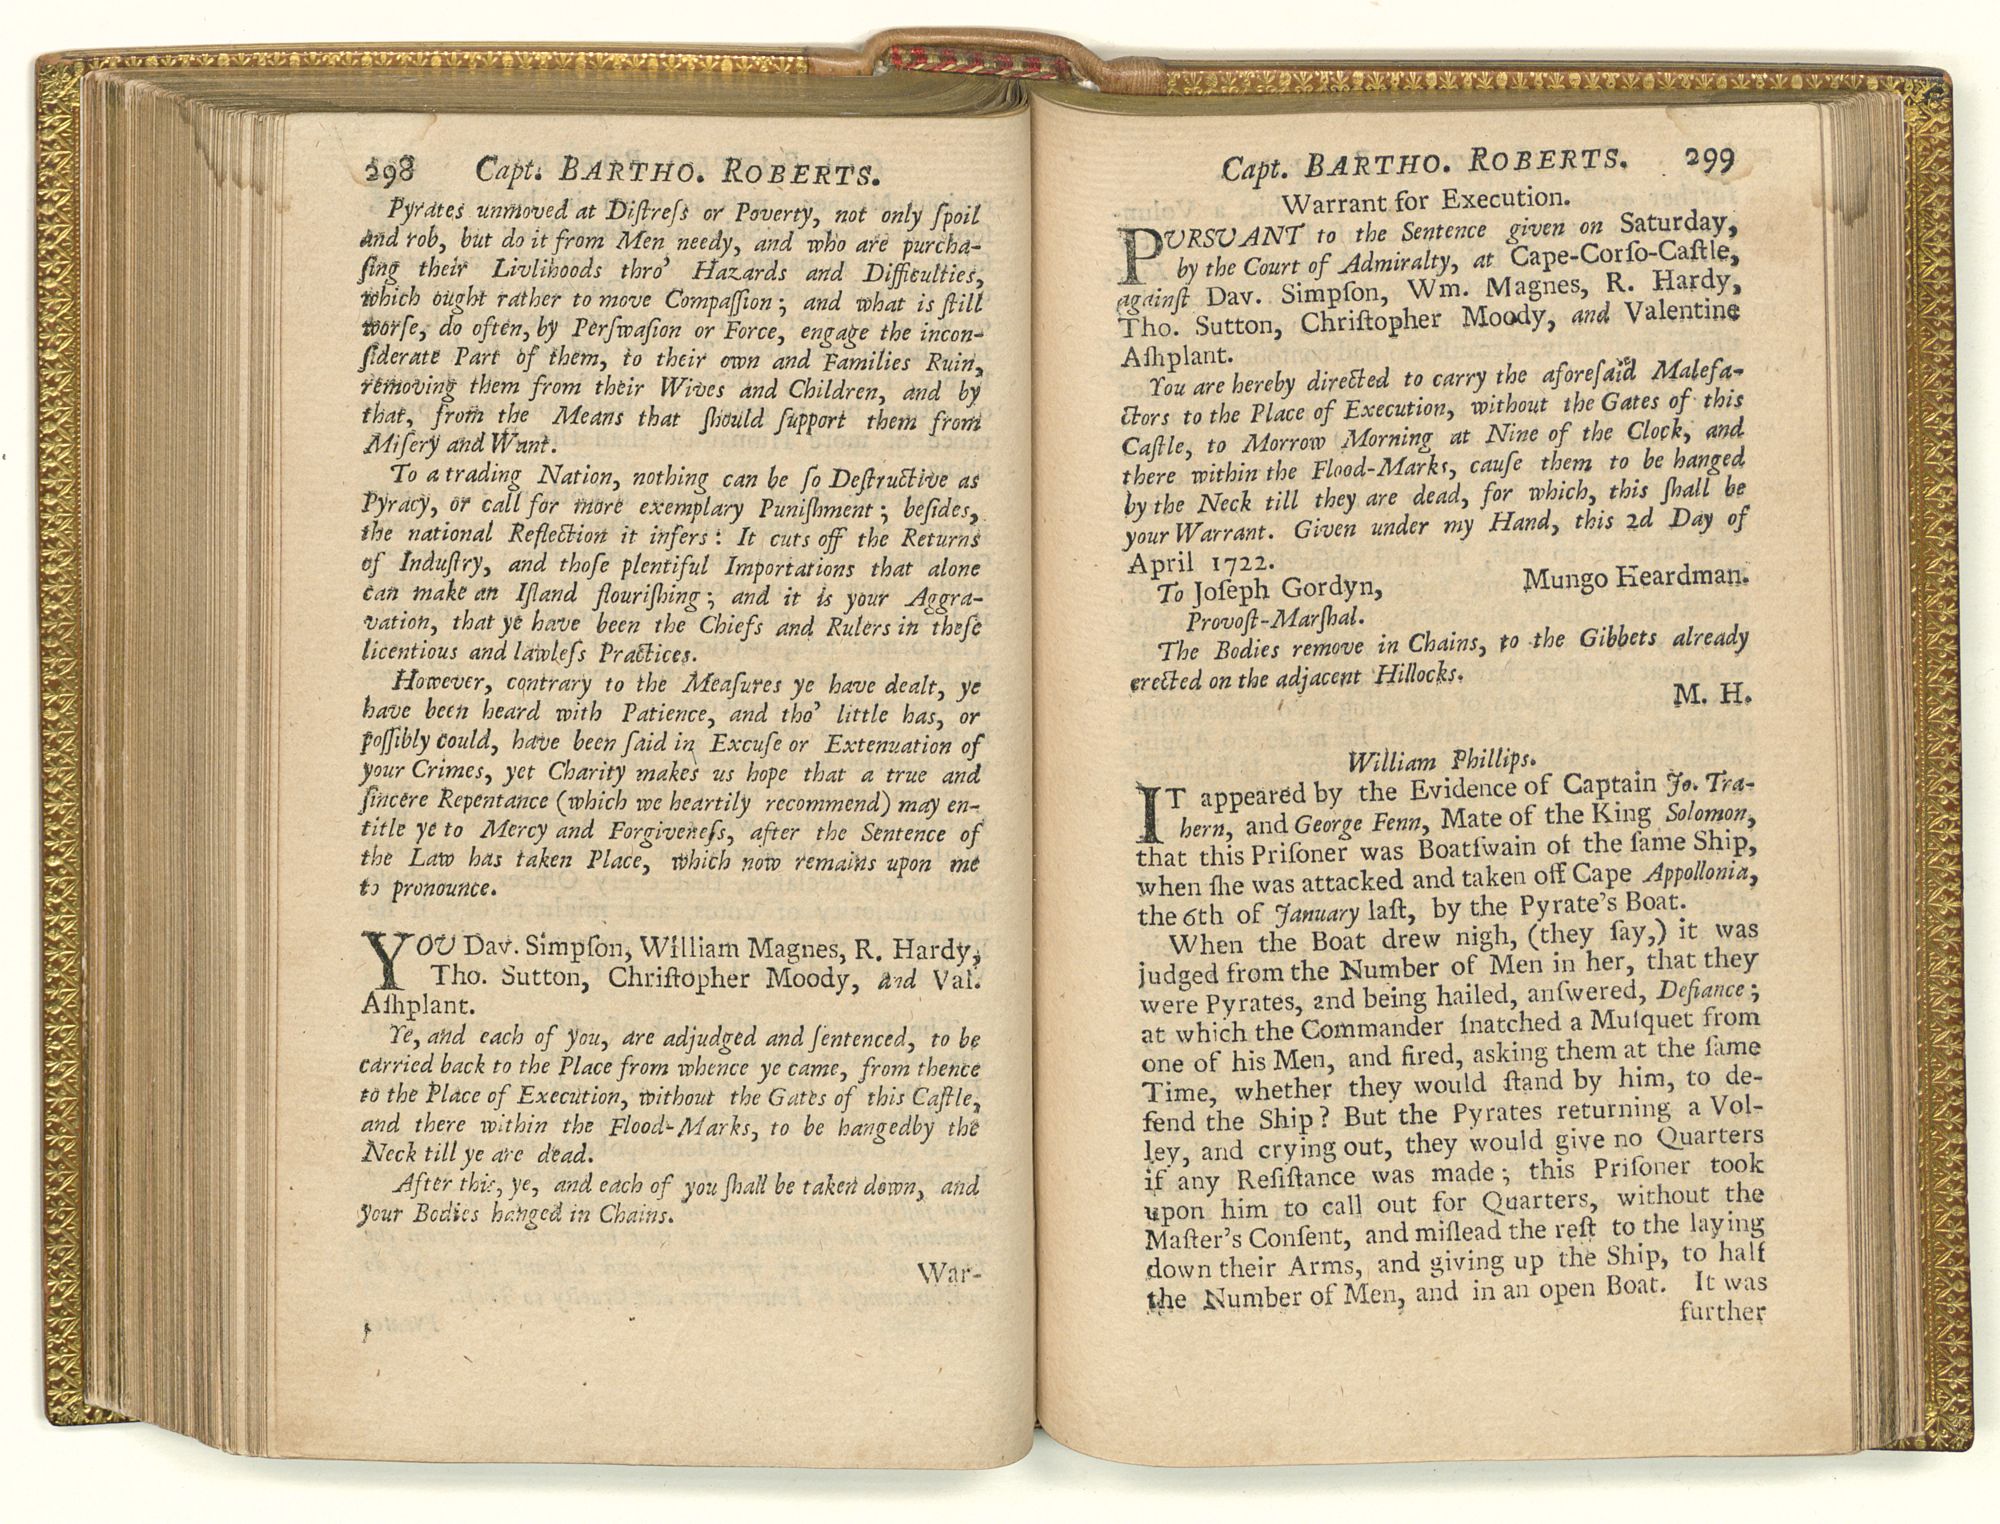 298 Capt. BARTHO. ROBERTS.
Pyrates unmoved at Diſtreſs or Poverty, not only ſpoil
and rob, but do it from Men needy, and who are purcha-
ſing their Livlihoods thro' Hazards and Difficulties,
which ought rather to move Compaſſion; and what is ſtill
worſe, do often, by Perſwaſion or Force, engage the incon-
ſiderate Part of them, to their own and Families Ruin,
removing them from their Wives and Children, and by
that, from the Means that ſhould ſupport them from
Miſery and Want.
To a trading Nation, nothing can be ſo Deſtructive as
Pyracy, or call for more exemplary Puniſhment; beſides,
the national Reflection it infers: It cuts off the Returns
of Induſtry, and thoſe plentiful Importations that alone
can make an Iſland flouriſhing; and it is your Aggra-
vation, that ye have been the Chiefs and Rulers in theſe
licentious and lawleſs Practices.
However, contrary to the Meaſures ye have dealt, ye
have been heard with Patience, and tho' little has, or
poſſibly could, have been ſaid in Excuſe or Extenuation of
your Crimes, yet Charity makes us hope that a true and
ſincere Repentance (which we heartily recommend) may en-
title ye to Mercy and Forgiveneſs, after the Sentence of
the Law has taken Place, which now remains upon me
to pronounce.
YOU Dav. Simpſon, William Magnes, R. Hardy,
Tho. Sutton, Chriſtopher Moody, and Val.
Aſhplant.
Ye, and each of you, are adjudged and ſentenced, to be
carried back to the Place from whence ye came, from thence
to the Place of Execution, without the Gates of this Caſtle,
and there within the Flood-Marks, to be hangedby the
Neck till ye are dead.
After this, ye, and each of you ſhall be taken down, and
your Bodies hanged in Chains.
War-
Capt. BARTHO. ROBERTS. 299
Warrant for Execution.
PURSUANT to the Sentence given on Saturday,
by the Court of Admiralty, at Cape-Corſo-Caſtle,
againſt Dav. Simpſon, Wm. Magnes, R. Hardy,
Tho. Sutton, Chriſtopher Moody, and Valentine
Aſhplant.
You are hereby directed to carry the aforeſaid Malefa-
ctors to the Place of Execution, without the Gates of this
Caſtle, to Morrow Morning at Nine of the Clock, and
there within the Flood-Marks, cauſe them to be hanged
by the Neck till they are dead, for which, this ſhall be
your Warrant. Given under my Hand, this 2d Day of
April 1722.
Mungo Heardman.
To Joſeph Gordyn,
Provoſt-Marſhal.
The Bodies remove in Chains, to the Gibbets already
erected on the adjacent Hillocks.
M. H.
William Phillips.
IT appeared by the Evidence of Captain Jo. Tra-
hern, and George Fenn, Mate of the King Solomon,
that this Priſoner was Boatſwain of the ſame Ship,
when ſhe was attacked and taken off Cape Appollonia,
the 6th of January laſt, by the Pyrate's Boat.
When the Boat drew nigh, (they ſay,) it was
judged from the Number of Men in her, that they
were Pyrates, and being hailed, anſwered, Defiance;
at which the Commander ſnatched a Muſquet from
one of his Men, and fired, asking them at the ſame
Time, whether they would ſtand by him, to de-
fend the Ship? But the Pyrates returning a Vol-
ley, and crying out, they would give no Quarters
if any Reſiſtance was made; this Priſoner took
upon him to call out for Quarters, without the
Maſter's Conſent, and miſlead the reſt to the laying
down their Arms, and giving up the Ship, to half
the Number of Men, and in an open Boat. It was
further